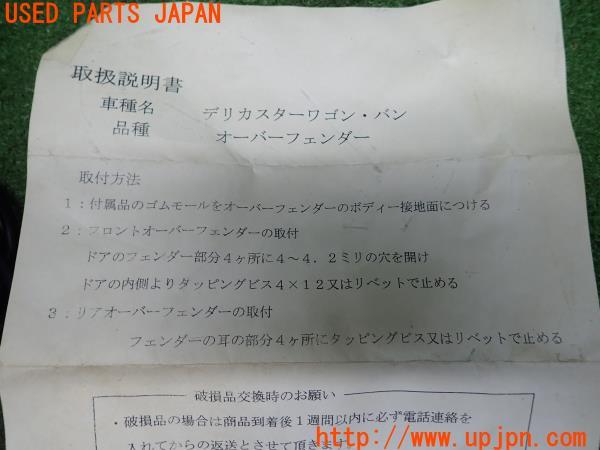 USED PARTS JAPAN
取扱説明書
車種名　デリカスターワゴン・バン
品種　オーバーフェンダー
取付方法
1：付属品のゴムモールをオーバーフェンダーのボディー接地面につける
2：フロントオーバーフェンダーの取付
ドアのフェンダー部分4ヶ所に4～4．2ミリの穴を開け
ドアの内側よりタッピングビス4×12又はリベットで止める
3：リアオーバーフェンダーの取付
フェンダーの耳の部分4ヶ所にタッピングビス又はリベットで止める
破損品交換時のお願い
・破損品の場合は商品到着後1週間以内に必ず電話連絡を
入れてからの返送とさせて頂きます
http://www.upjpn.com